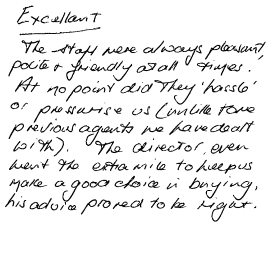 Excellant
The staff were always pleasant,
polite & friendly at all times.
At no point did they 'hassle'
or pressurise us (unlike some
previous agents we have dealt
with). The director, even
went the extra mile to help us
make a good choice in buying,
his advice proved to be right.